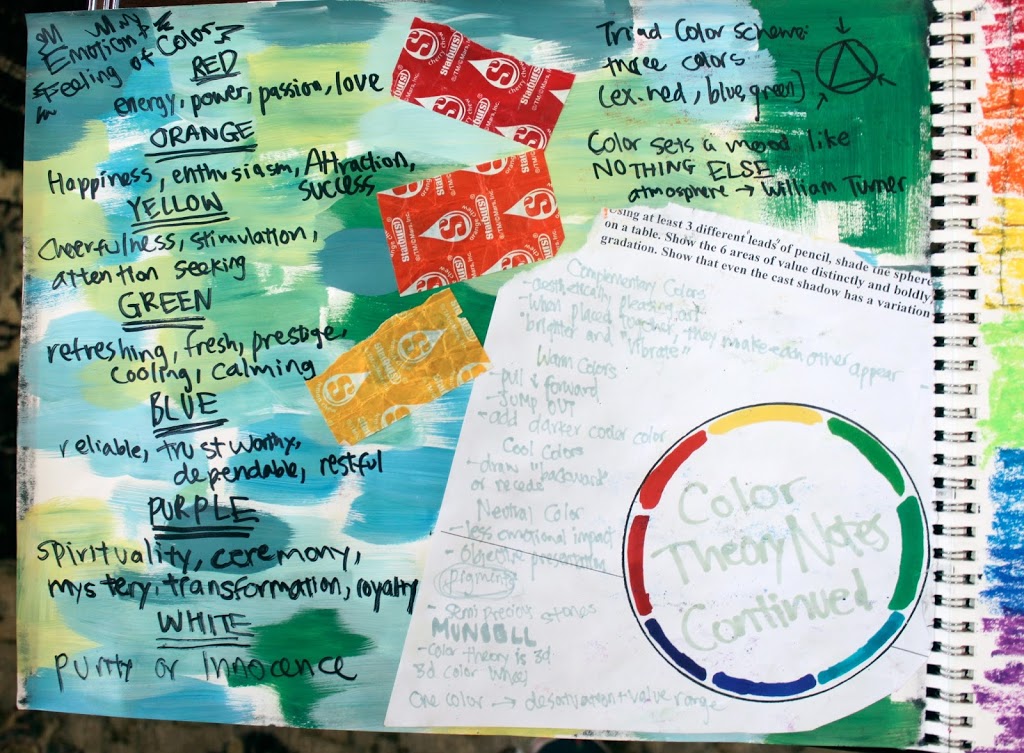 Emotion &
Feeling of Color
RED
energy, power, passion, love
ORANGE
Happiness, enthusiasm, Attraction,
success
YELLOW
cheerfulness, stimulation,
attention seeking
GREEN
refreshing, fresh, prestige,
cooling, calming
BLUE
reliable, trustworthy,
dependable, restful
PURPLE
spirituality, ceremony,
mystery, transformation, royalty
WHITE
purity or Innocence
Starburst
cherry chew
©/TM/©Mars. Inc.
Starburst
©/TM/©Mars. Inc.
Triad Color scheme:
three colors
(ex. red, blue, green)
Color sets a mood like
NOTHING ELSE
atmosphere → William Turner
Using at least 3 different leads of pencil, shade the sphere
on a table. Show the 6 areas of value distinctly and boldly
gradation. Show that even the cast shadow has a variation
Complementary Colors
- aesthetically pleasing
- when placed together, they make each other appear
"brighter and "vibrate"
Warm Colors
- pull & forward
- JUMP OUT
- add darker color
Cool Colors
- draw "backward"
or recede
Neutral Color
- less emotional impact
- objective presentation
pigments
- semi precious stones
MUNSELL
- Color theory is 3d
3d color wheel
One color → desaturation + value range
Color
Theory Notes
Continued